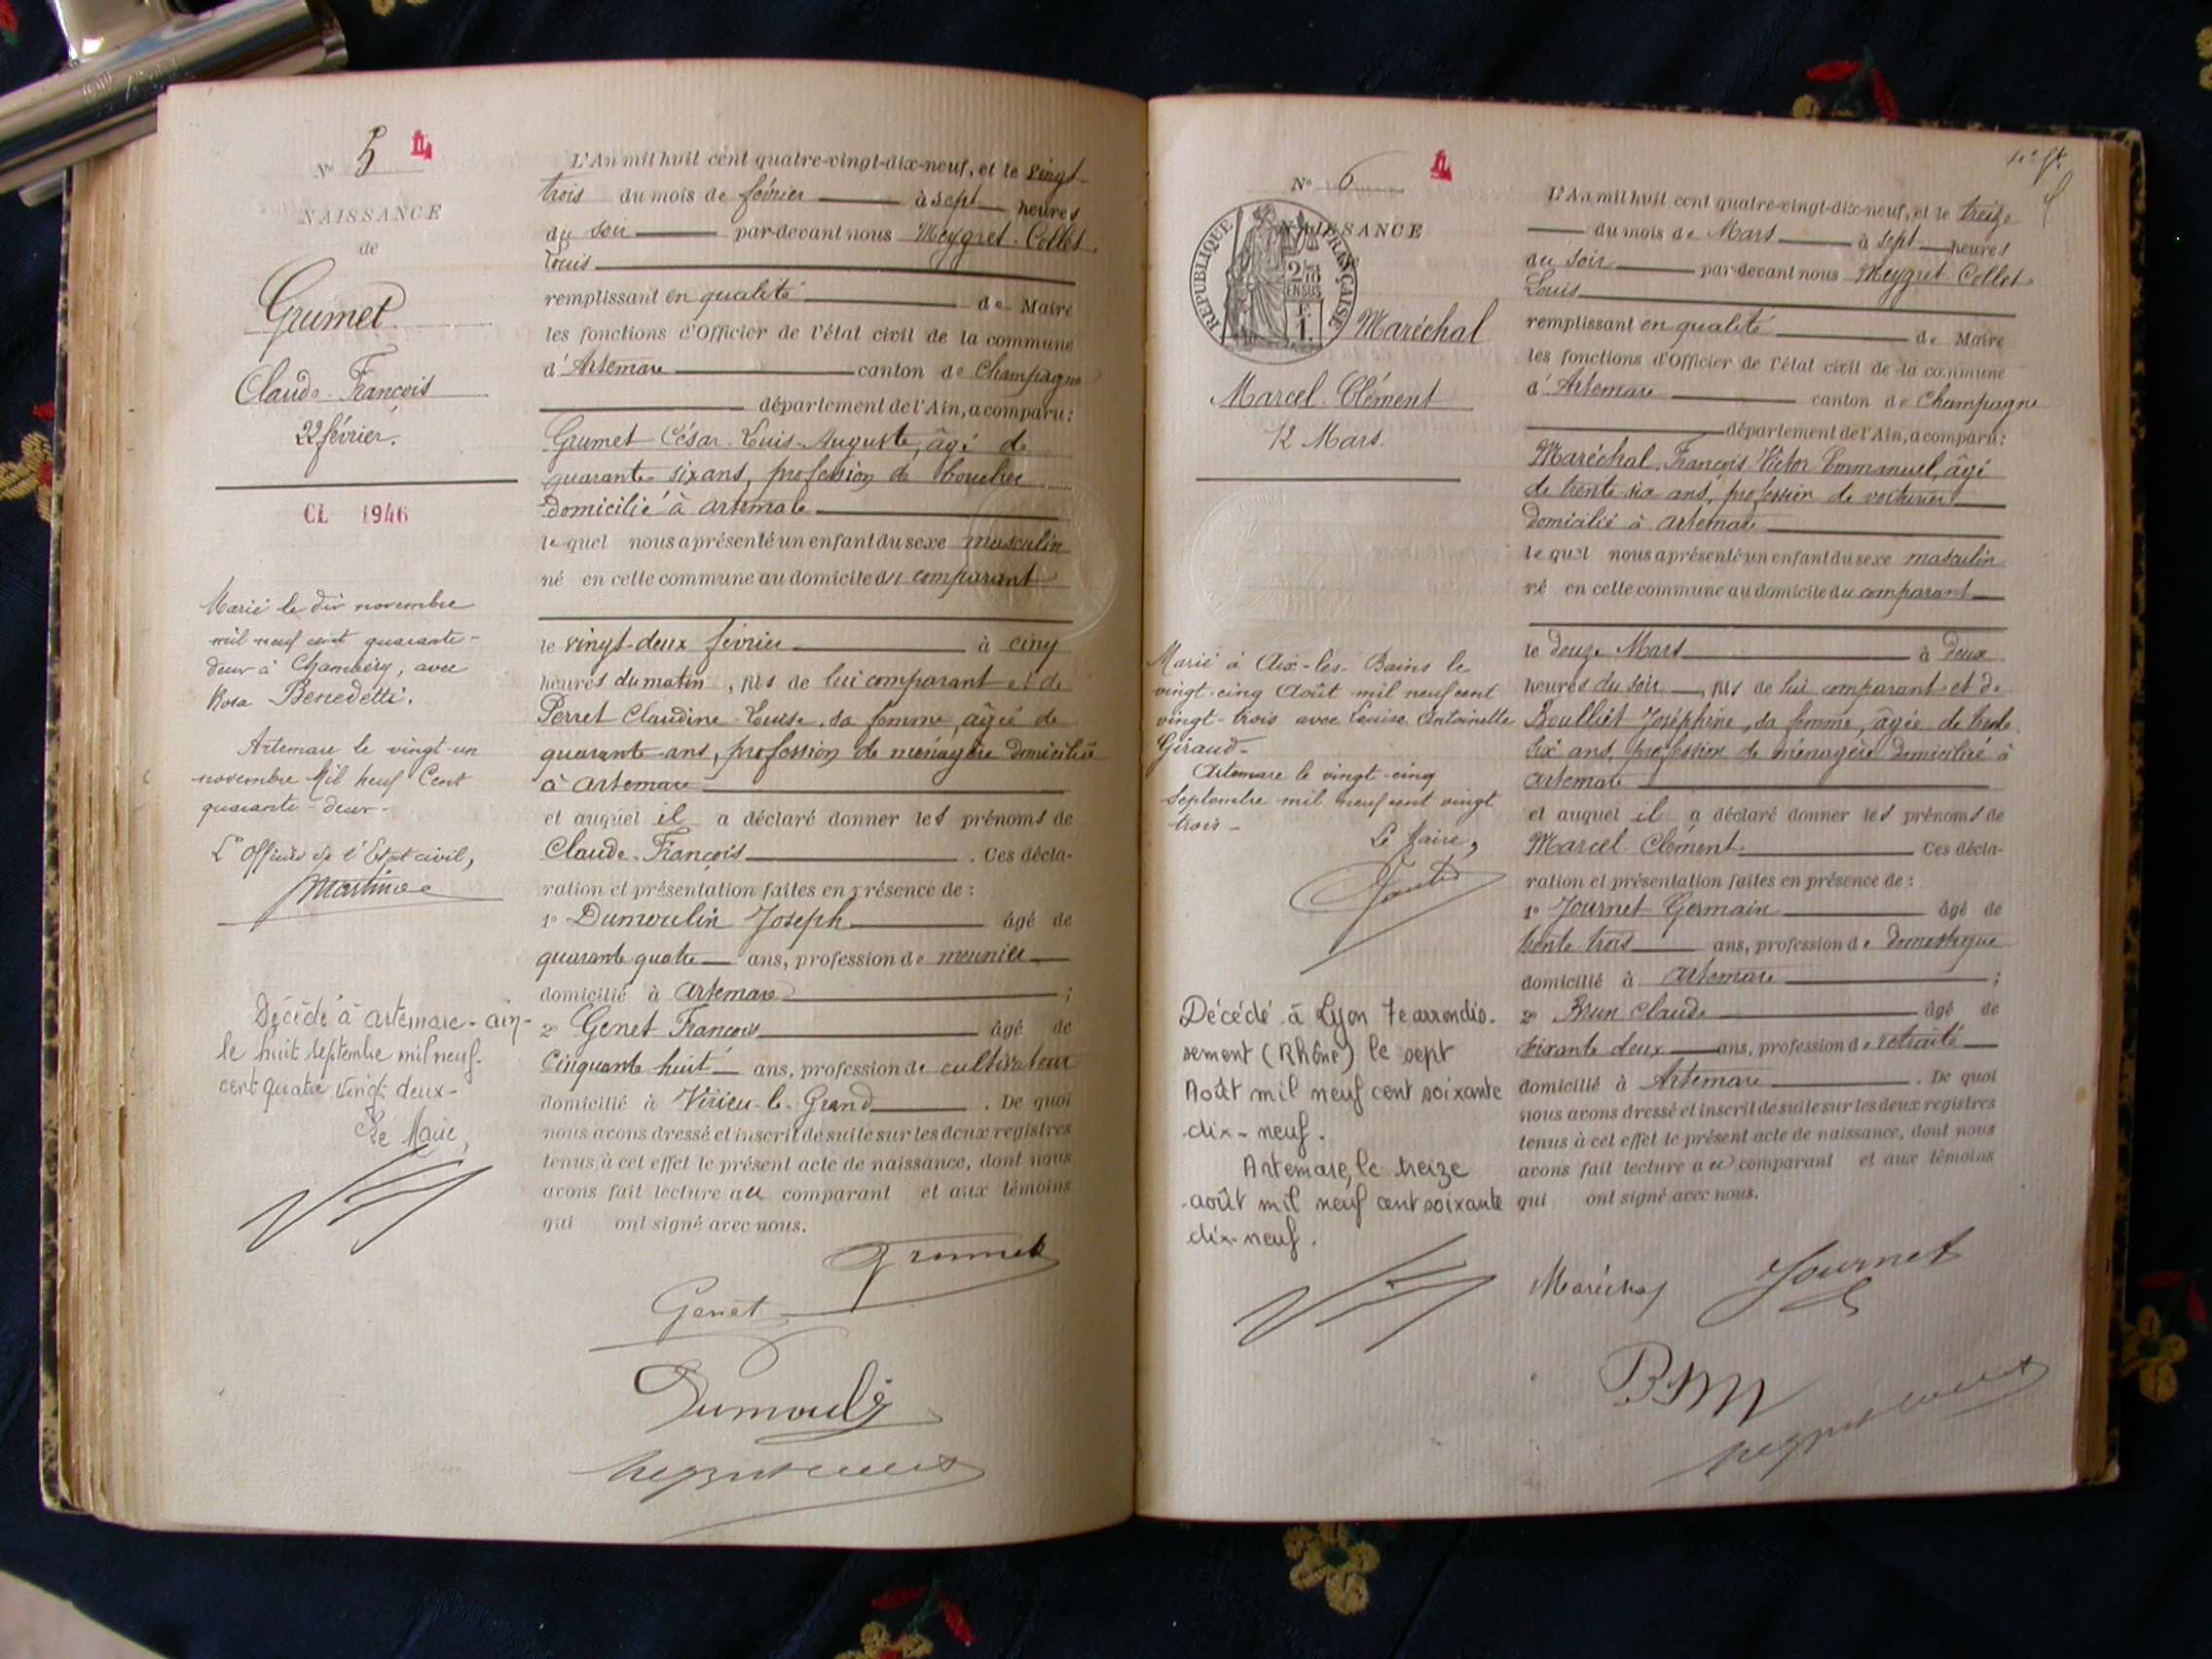 N° 5
NAISSANCE
de
Grumet
Claude-François
22 février.
CL 1946
Marié le dix novembre
mil neuf cent quarante-
deux à Chambéry, avec
Rosa Benedetti.
Artemare le vingt-un
novembre Mil neuf Cent
quarante-deux-
L'Officier de l'Etat civil,
Décédé à Artemare-ain-
le huit septembre mil neuf-
cent quatre vingt deux-
Le Maire,
L'An mil huit cent quatre-vingt-dix-neuf, et le vingt-
trois du mois de février à sept heures
du soir par-devant nous Meygret-Collet
Louis
remplissant en qualité de Maire
les fonctions d'Officier de l'état civil de la commune
d'Artemare canton de Champagne
département de l'Ain, a comparu:
Grumet César-Louis-Auguste, âgé de
quarante-six ans, profession de boucher
domicilié à Artemare
lequel nous a présenté un enfant du sexe masculin
né en cette commune au domicile du comparant
le vingt-deux février à cinq
heures du matin, fils de lui comparant et de
Perret Claudine-Louise, sa femme, âgée de
quarante ans, profession de ménagère domiciliée
à Artemare
et auquel il a déclaré donner les prénoms de
Claude-François. Ces décla-
ration et présentation faites en présence de:
1° Dumoulin Joseph âgé de
quarante quatre ans, profession de meunier
domicilié à Artemare;
2° Genet François âgé de
Cinquante huit ans, profession de cultivateur
domicilié à Virieu-le-Grand. De quoi
nous avons dressé et inscrit de suite sur les deux registres
tenus à cet effet le présent acte de naissance, dont nous
avons fait lecture au comparant et aux témoins
qui ont signé avec nous.
Grumet
Genet
Dumoulin
N° 6
NAISSANCE
REPUBLIQUE FRANÇAISE
2/10 EN SUS
1F.
Maréchal
Marcel-Clément
12 Mars.
Marié à Aix-les-Bains le
vingt-cinq Août mil neuf cent
vingt-trois avec Louise Antoinette
Giraud-
Artemare le vingt-cinq
Septembre mil neuf cent vingt
trois-
Le Maire,
Décédé à Lyon 7e arrondis-
sement (Rhône) le sept
Août mil neuf cent soixante
dix-neuf.
Artemare, le treize
août mil neuf cent soixante
dix-neuf.
L'An mil huit cent quatre-vingt-dix-neuf, et le treize
du mois de Mars à sept heures
du soir par-devant nous Meygret-Collet
Louis
remplissant en qualité de Maire
les fonctions d'Officier de l'état civil de la commune
d'Artemare canton de Champagne
département de l'Ain, a comparu:
Maréchal, François Victor Emmanuel, âgé
de trente-six ans, profession de voiturier
domicilié à Artemare
lequel nous a présenté un enfant du sexe masculin
né en cette commune au domicile du comparant
le douze Mars à deux
heures du soir, fils de lui comparant et de
Boulliet Joséphine, sa femme, âgée de trente
six ans, profession de ménagère domiciliée à
Artemare
et auquel il a déclaré donner les prénoms de
Marcel-Clément Ces décla-
ration et présentation faites en présence de:
1° Journet Germain âgé de
trente trois ans, profession de domestique
domicilié à Artemare;
2° Brun Claude âgé de
soixante deux ans, profession de retraité
domicilié à Artemare. De quoi
nous avons dressé et inscrit de suite sur les deux registres
tenus à cet effet le présent acte de naissance, dont nous
avons fait lecture au comparant et aux témoins
qui ont signé avec nous.
Maréchal Journet